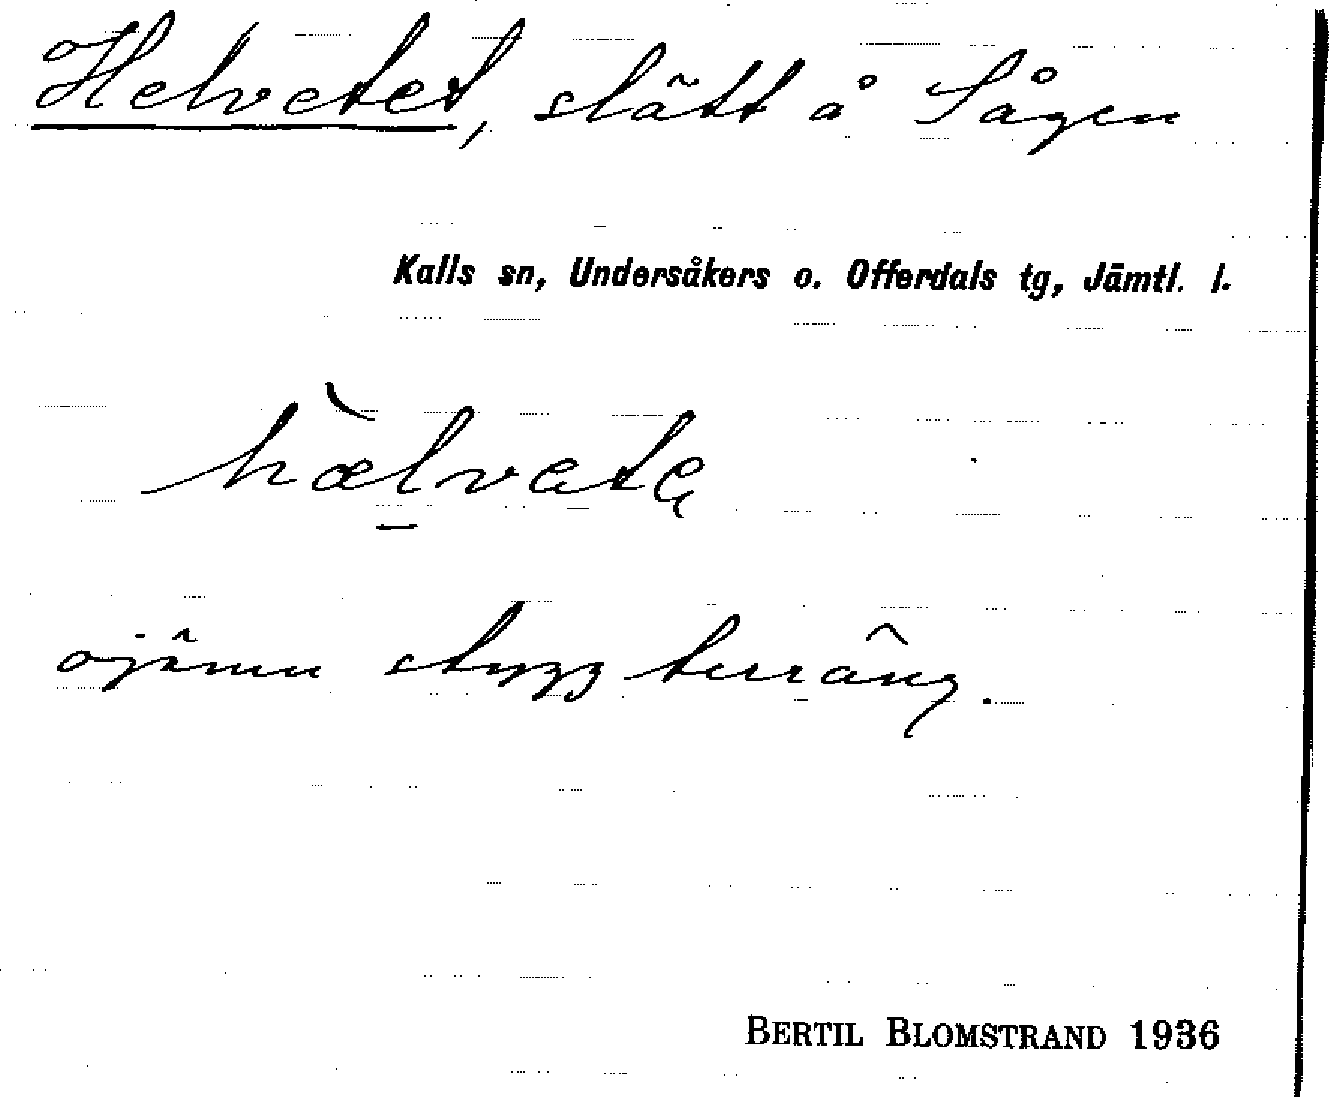 Helvetet, slått å Sågen
Kalls sn, Undersåkers o. Offerdals tg, Jämtl. l.
hæ̀lvetę
ojämn stygg terräng.
BERTIL BLOMSTRAND 1936